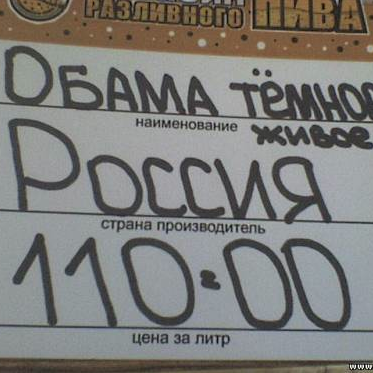 РАЗЛИВНОГО ПИВА
ОБАМА ТЁМНОЕ
наименование
живое
РОССИЯ
страна производитель
110=00
цена за литр
www